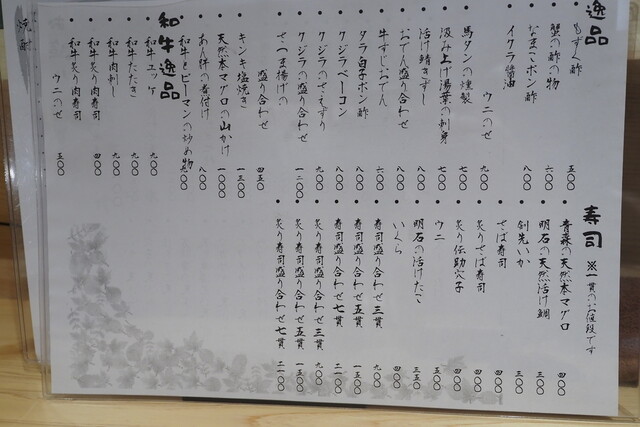 逸品
・もずく酢 五〇〇
・蟹の酢の物 六〇〇
・なまこポン酢 八〇〇
・イクラ醤油
ウニのせ 九〇〇
・馬タンの燻製 七〇〇
・汲み上げ湯葉の刺身 七〇〇
・活け鯖きずし 八〇〇
・おでん盛り合わせ 八〇〇
・牛すじおでん 六〇〇
・タラ白子ポン酢 八〇〇
・クジラベーコン 八〇〇
・クジラのさえずり 九〇〇
・クジラの盛り合わせ 一二〇〇
・さつま揚げの
盛り合わせ 四五〇
・キンキ塩焼き 一三〇〇
・天然本マグロの山かけ 一〇〇〇
・あら の煮付け 八〇〇
・和牛とピーマンの炒め物 九〇〇
和牛逸品
・和牛ユッケ 九〇〇
・和牛たたき 九〇〇
・和牛肉刺し 九〇〇
・和牛炙り肉寿司 四〇〇
ウニのせ 五〇〇
寿司 ※一貫のお値段です
・青森の天然本マグロ 四〇〇
・明石の天然活け鯛 三〇〇
・剣先いか 三〇〇
・さば寿司 四〇〇
・炙りさば寿司 四〇〇
・炙り伝助穴子 四〇〇
・ウニ 五〇〇
・明石の活けたこ 三五〇
・いくら 四〇〇
・寿司盛り合わせ三貫 九〇〇
・寿司盛り合わせ五貫 一五〇〇
・寿司盛り合わせ七貫 二一〇〇
・炙り寿司盛り合わせ三貫 九〇〇
・炙り寿司盛り合わせ五貫 一五〇〇
・炙り寿司盛り合わせ七貫 二一〇〇
焼酎